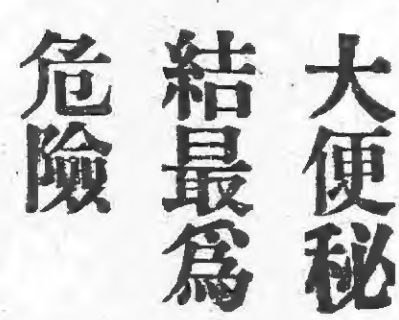 大便秘
結最爲
危險